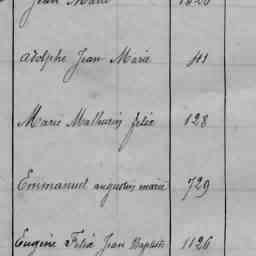 Jean Marie 1826
Adolphe Jean Marie 41
Marie Mathurin félix 128
Emmanuel augustin marie 729
Eugène Félix Jean Baptiste 1126